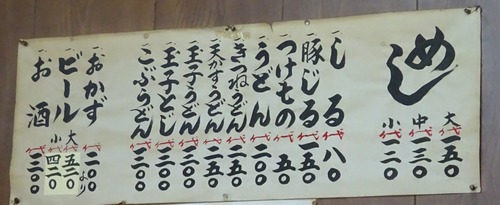 めし
大 一五〇
中 一三〇
小 一二〇
一、しる 代八〇
一、豚じる 代一五〇
一、つけもの 代五〇
一、うどん 代二〇〇
一、きつねうどん 代二五〇
一、天かすうどん 代二五〇
一、玉子うどん 代三〇〇
一、玉子とじ 代三〇〇
一、こぶうどん 代二五〇
一、おかず 代二〇〇より
一、ビール 大 代五二〇
小 代四二〇
一、お酒 代三〇〇